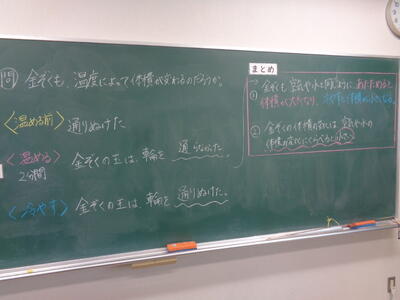 問 金ぞくも、温度によって体積が変わるのだろうか。
<温める前> 通りぬけた
<温める> 金ぞくの玉は、輪を 通らなかった
2分間
<冷やす> 金ぞくの玉は、輪を 通りぬけた。
まとめ
① 金ぞくも空気や水と同じように、あたためると
体積が大きくなり、冷やすと体積が小さくなる。
② 金ぞくの体積の変化は、空気や水の
体積の変化にくらべると小さい